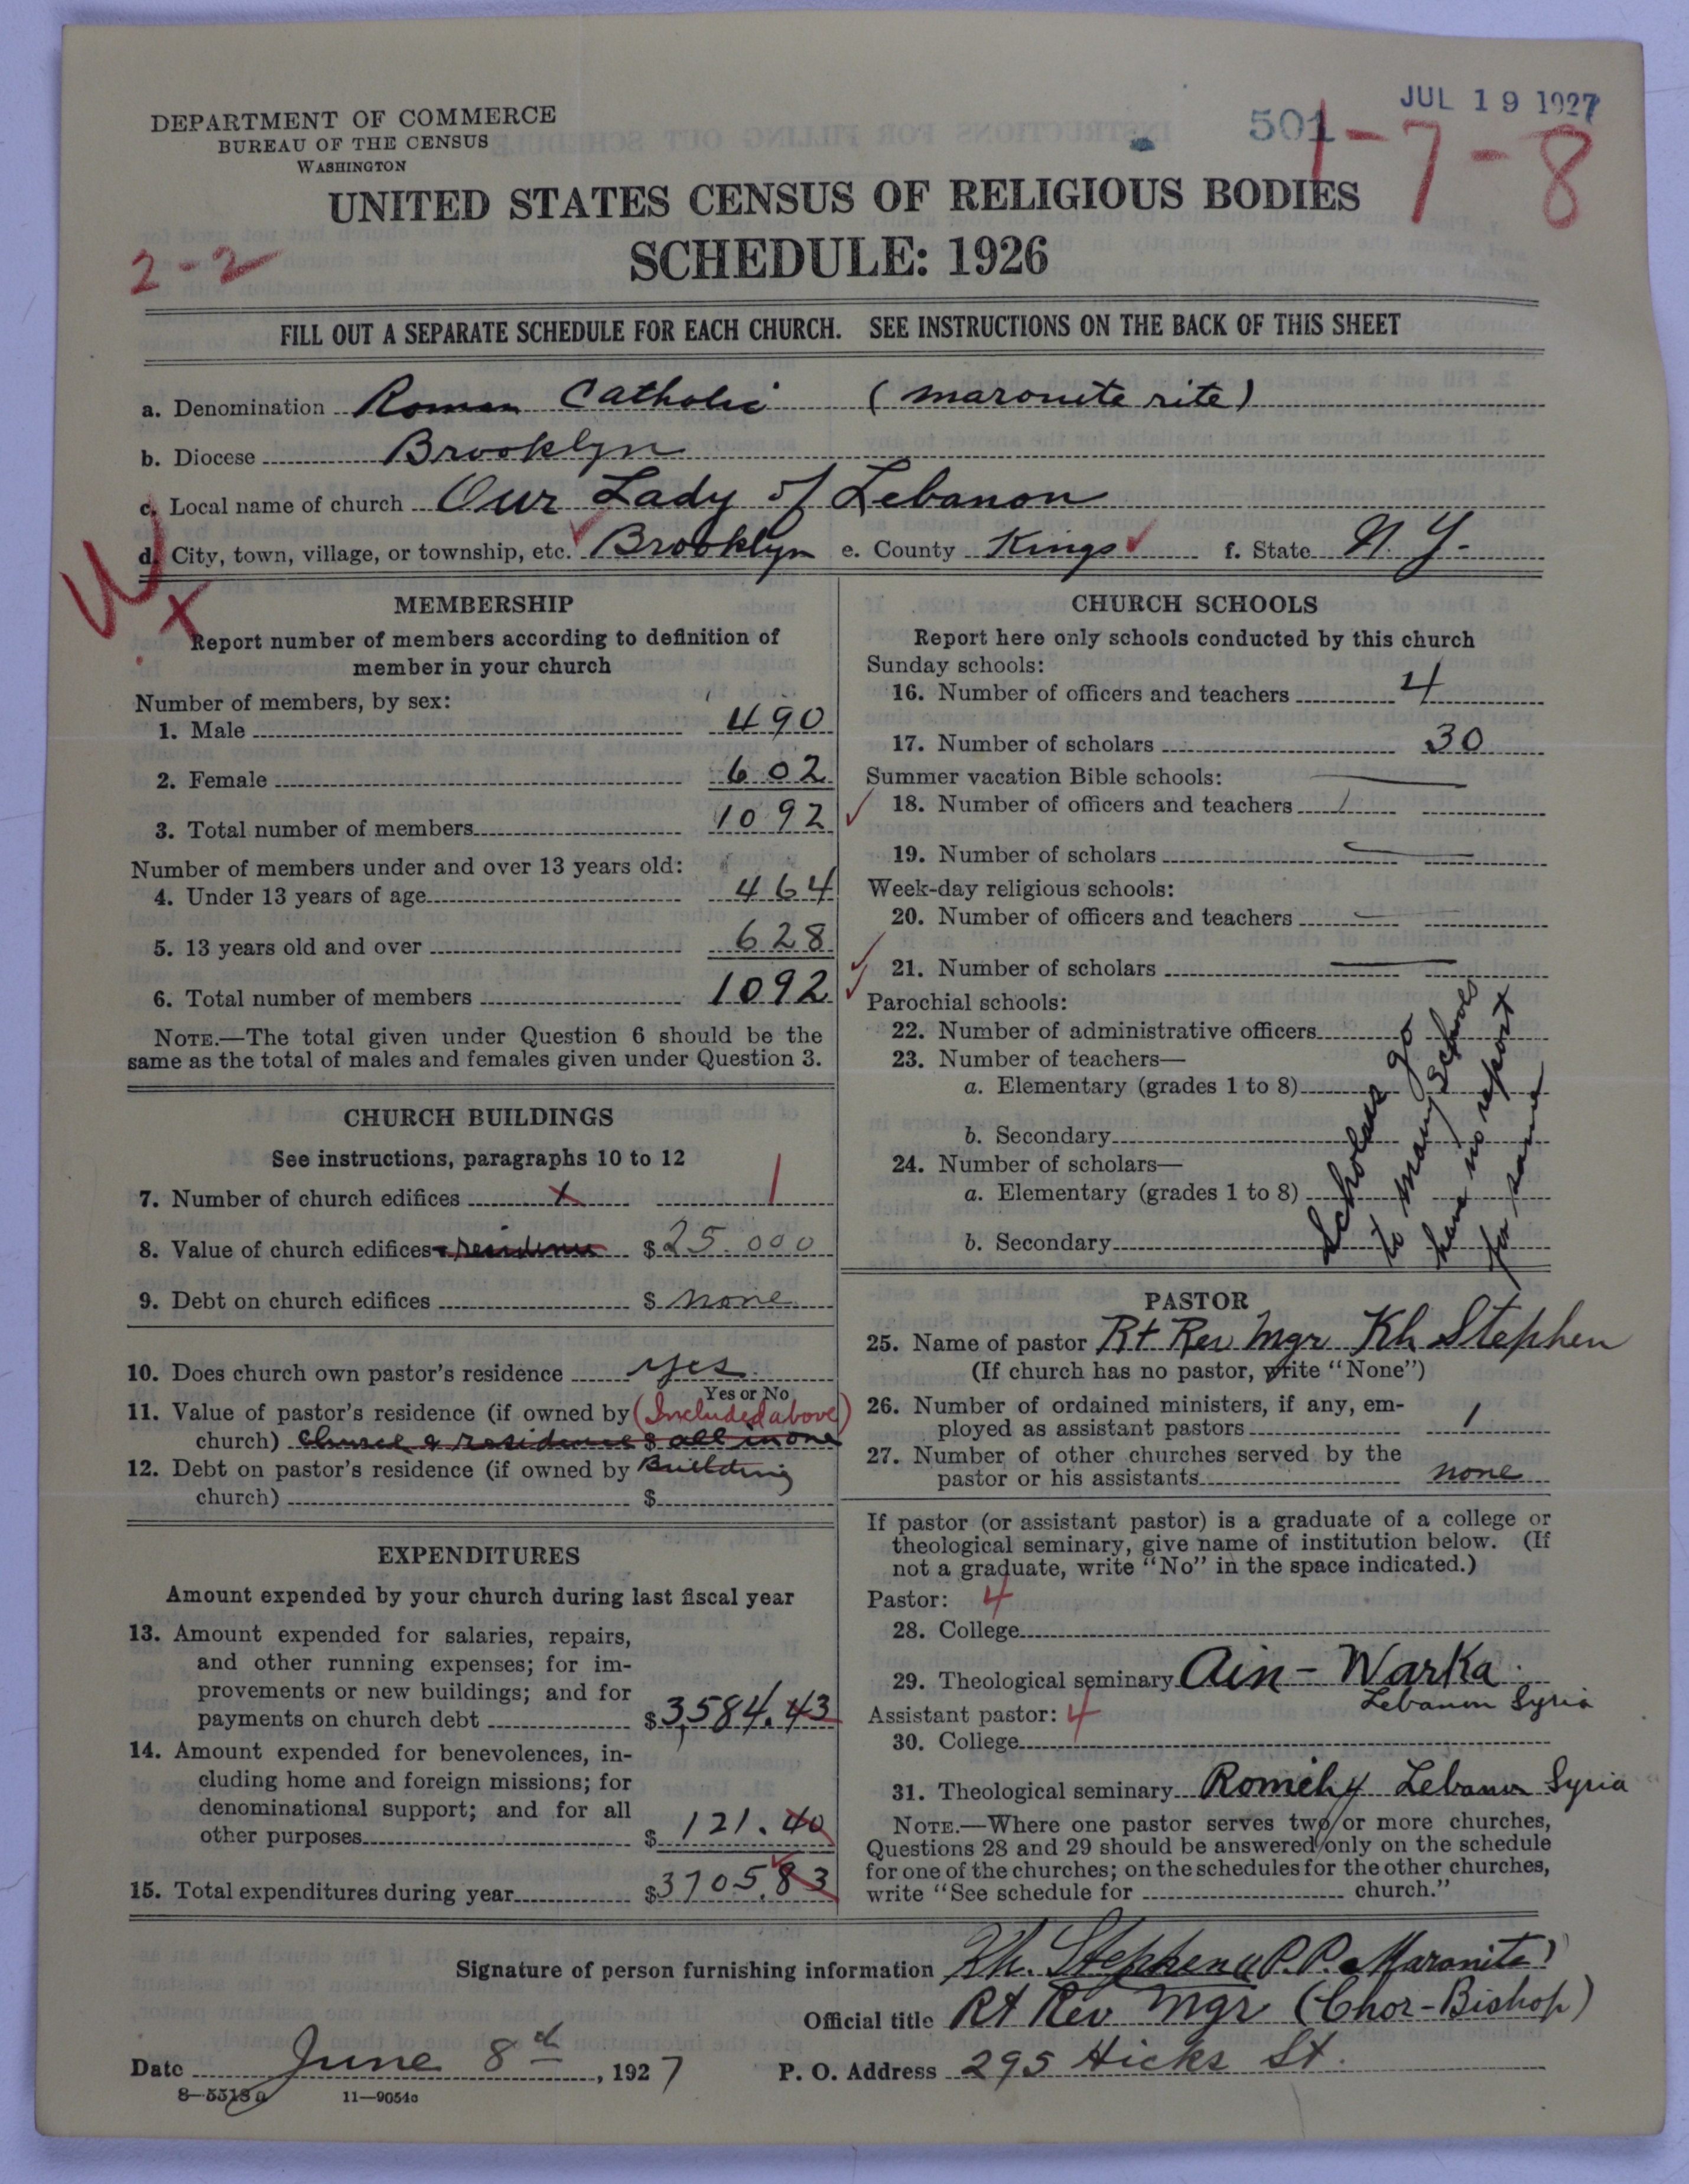 JUL 19 1927
501
1-7-8
DEPARTMENT OF COMMERCE
BUREAU OF THE CENSUS
WASHINGTON
UNITED STATES CENSUS OF RELIGIOUS BODIES
2-2
SCHEDULE: 1926
FILL OUT A SEPARATE SCHEDULE FOR EACH CHURCH. SEE INSTRUCTIONS ON THE BACK OF THIS SHEET
a. Denomination Roman Catholic (maronite rite)
b. Diocese Brooklyn
c. Local name of church Our Lady of Lebanon
d. City, town, village, or township, etc. Brooklyn e. County Kings f. State N. Y.
MEMBERSHIP
Report number of members according to definition of
member in your church
Number of members, by sex:
1. Male 490
2. Female 602
3. Total number of members 1092
Number of members under and over 13 years old:
4. Under 13 years of age 464
5. 13 years old and over 628
6. Total number of members 1092
NOTE.—The total given under Question 6 should be the
same as the total of males and females given under Question 3.
CHURCH BUILDINGS
See instructions, paragraphs 10 to 12
7. Number of church edifices x 1
8. Value of church edifices & residence $25.000
9. Debt on church edifices $ none
10. Does church own pastor's residence yes
Yes or No
11. Value of pastor's residence (if owned by (Included above)
church) church & residence $ all in one
12. Debt on pastor's residence (if owned by Building
church) $
EXPENDITURES
Amount expended by your church during last fiscal year
13. Amount expended for salaries, repairs,
and other running expenses; for im-
provements or new buildings; and for
payments on church debt $3,584.43
14. Amount expended for benevolences, in-
cluding home and foreign missions; for
denominational support; and for all
other purposes $ 121.40
15. Total expenditures during year $3705.83
CHURCH SCHOOLS
Report here only schools conducted by this church
Sunday schools:
16. Number of officers and teachers 4
17. Number of scholars 30
Summer vacation Bible schools:
18. Number of officers and teachers
19. Number of scholars
Week-day religious schools:
20. Number of officers and teachers
21. Number of scholars
Parochial schools:
22. Number of administrative officers
23. Number of teachers—
a. Elementary (grades 1 to 8)
b. Secondary
24. Number of scholars—
a. Elementary (grades 1 to 8)
b. Secondary
Scholars go
to many Schools
have no report
for same
PASTOR
25. Name of pastor Rt Rev Mgr Kh Stephen
(If church has no pastor, write "None")
26. Number of ordained ministers, if any, em-
ployed as assistant pastors 1
27. Number of other churches served by the
pastor or his assistants none
If pastor (or assistant pastor) is a graduate of a college or
theological seminary, give name of institution below. (If
not a graduate, write "No" in the space indicated.)
Pastor: 4
28. College
29. Theological seminary Ain-Warka
Lebanon Syria
Assistant pastor: 4
30. College
31. Theological seminary Romehy Lebanon Syria
NOTE.—Where one pastor serves two or more churches,
Questions 28 and 29 should be answered only on the schedule
for one of the churches; on the schedules for the other churches,
write "See schedule for church."
Signature of person furnishing information Kh. Stephen (P.P. Maronite)
Official title Rt Rev Mgr (Chor-Bishop)
Date June 8th, 1927 P. O. Address 295 Hicks St.
8—5518a 11—9054c